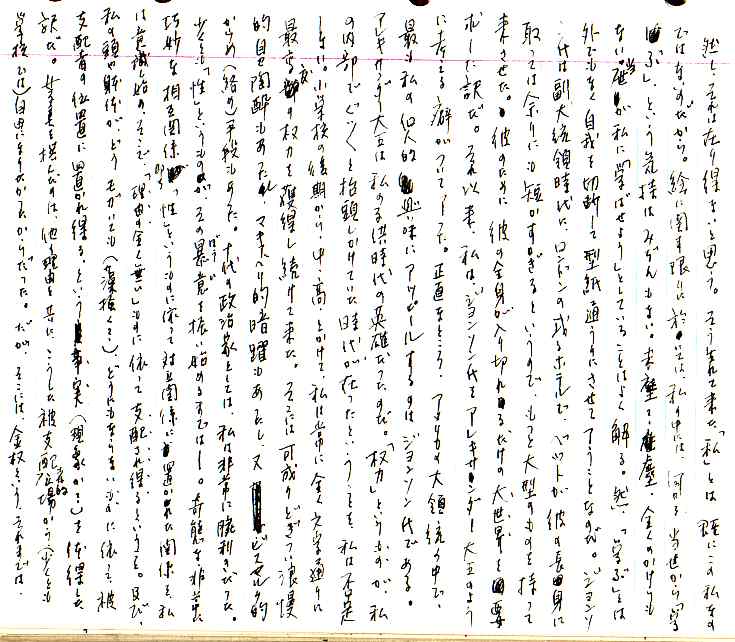 然し、それは在り得ないと思う。そう言って来た「私」とは 既にこの私なの
ではないのだから。絵に関する限りに於いては、私の中には、何かを 当世から「学
ぶ」、という気持はみじんもない。
が私に「学ばせよう」としていることはよく解る。然し「学ぶ」とは
外でもなく自我を切断して型紙通りにさせてしまうことなのだ。ジョンソン
氏は副大統領時代に、ロンドンの或るホテルで、ベットが彼の長身に
取っては余りにも短かすぎるというので、もっと大型のものを持って
来させた。彼のために 彼の全身が入り切れるだけの大世界を要
求した訳だ。それ以来、私は、ジョンソン氏をアレキサンダー大王のよう
に考える癖がついてしまった。正直なところ、アメリカの大領統の中で、
最も私の個人的興味にアッピールするのはジョンソン氏である。
アレキサンダー大王は私の子供時代の英雄だったのだ。「权力」というものが、私
の内部でぐんぐんと抬頭しかけていた時代が在ったということを、私は否定
しない。小学校の後期から、中、高、とかけて、私は常に全く文字通りに
最高度の权力を獲得し続けて来た。そこには可成りどぎつい浪漫
的自己陶酔もあったし、マキアベリ的暗躍もあったし、又
からめ(絡め)手段もあった。十代の政治家としては、私は非常に腕利きだった。
少くとも「性」というものが、その暴意を振い始めるまでは――。奇態な非常に
巧妙な相互関係が「性」というものに依って対立関係に置かれた関係を、私
は意識し始め、そこで「理由の全く無い」ものに依って支配され得るということを。及び、
私の頭や身体が、どうもがいても(藻掻く?)、どうにもならないものに依って、被
支配者の位置に置かれ得る、という事実(現象か?)を体得した
訳だ。女子美を択んだのは、他の理由と共に、こうした被支配者的立場から(少くとも
学校では)自由になりたかったからだった。だが、そこには、金权という、それまでは、